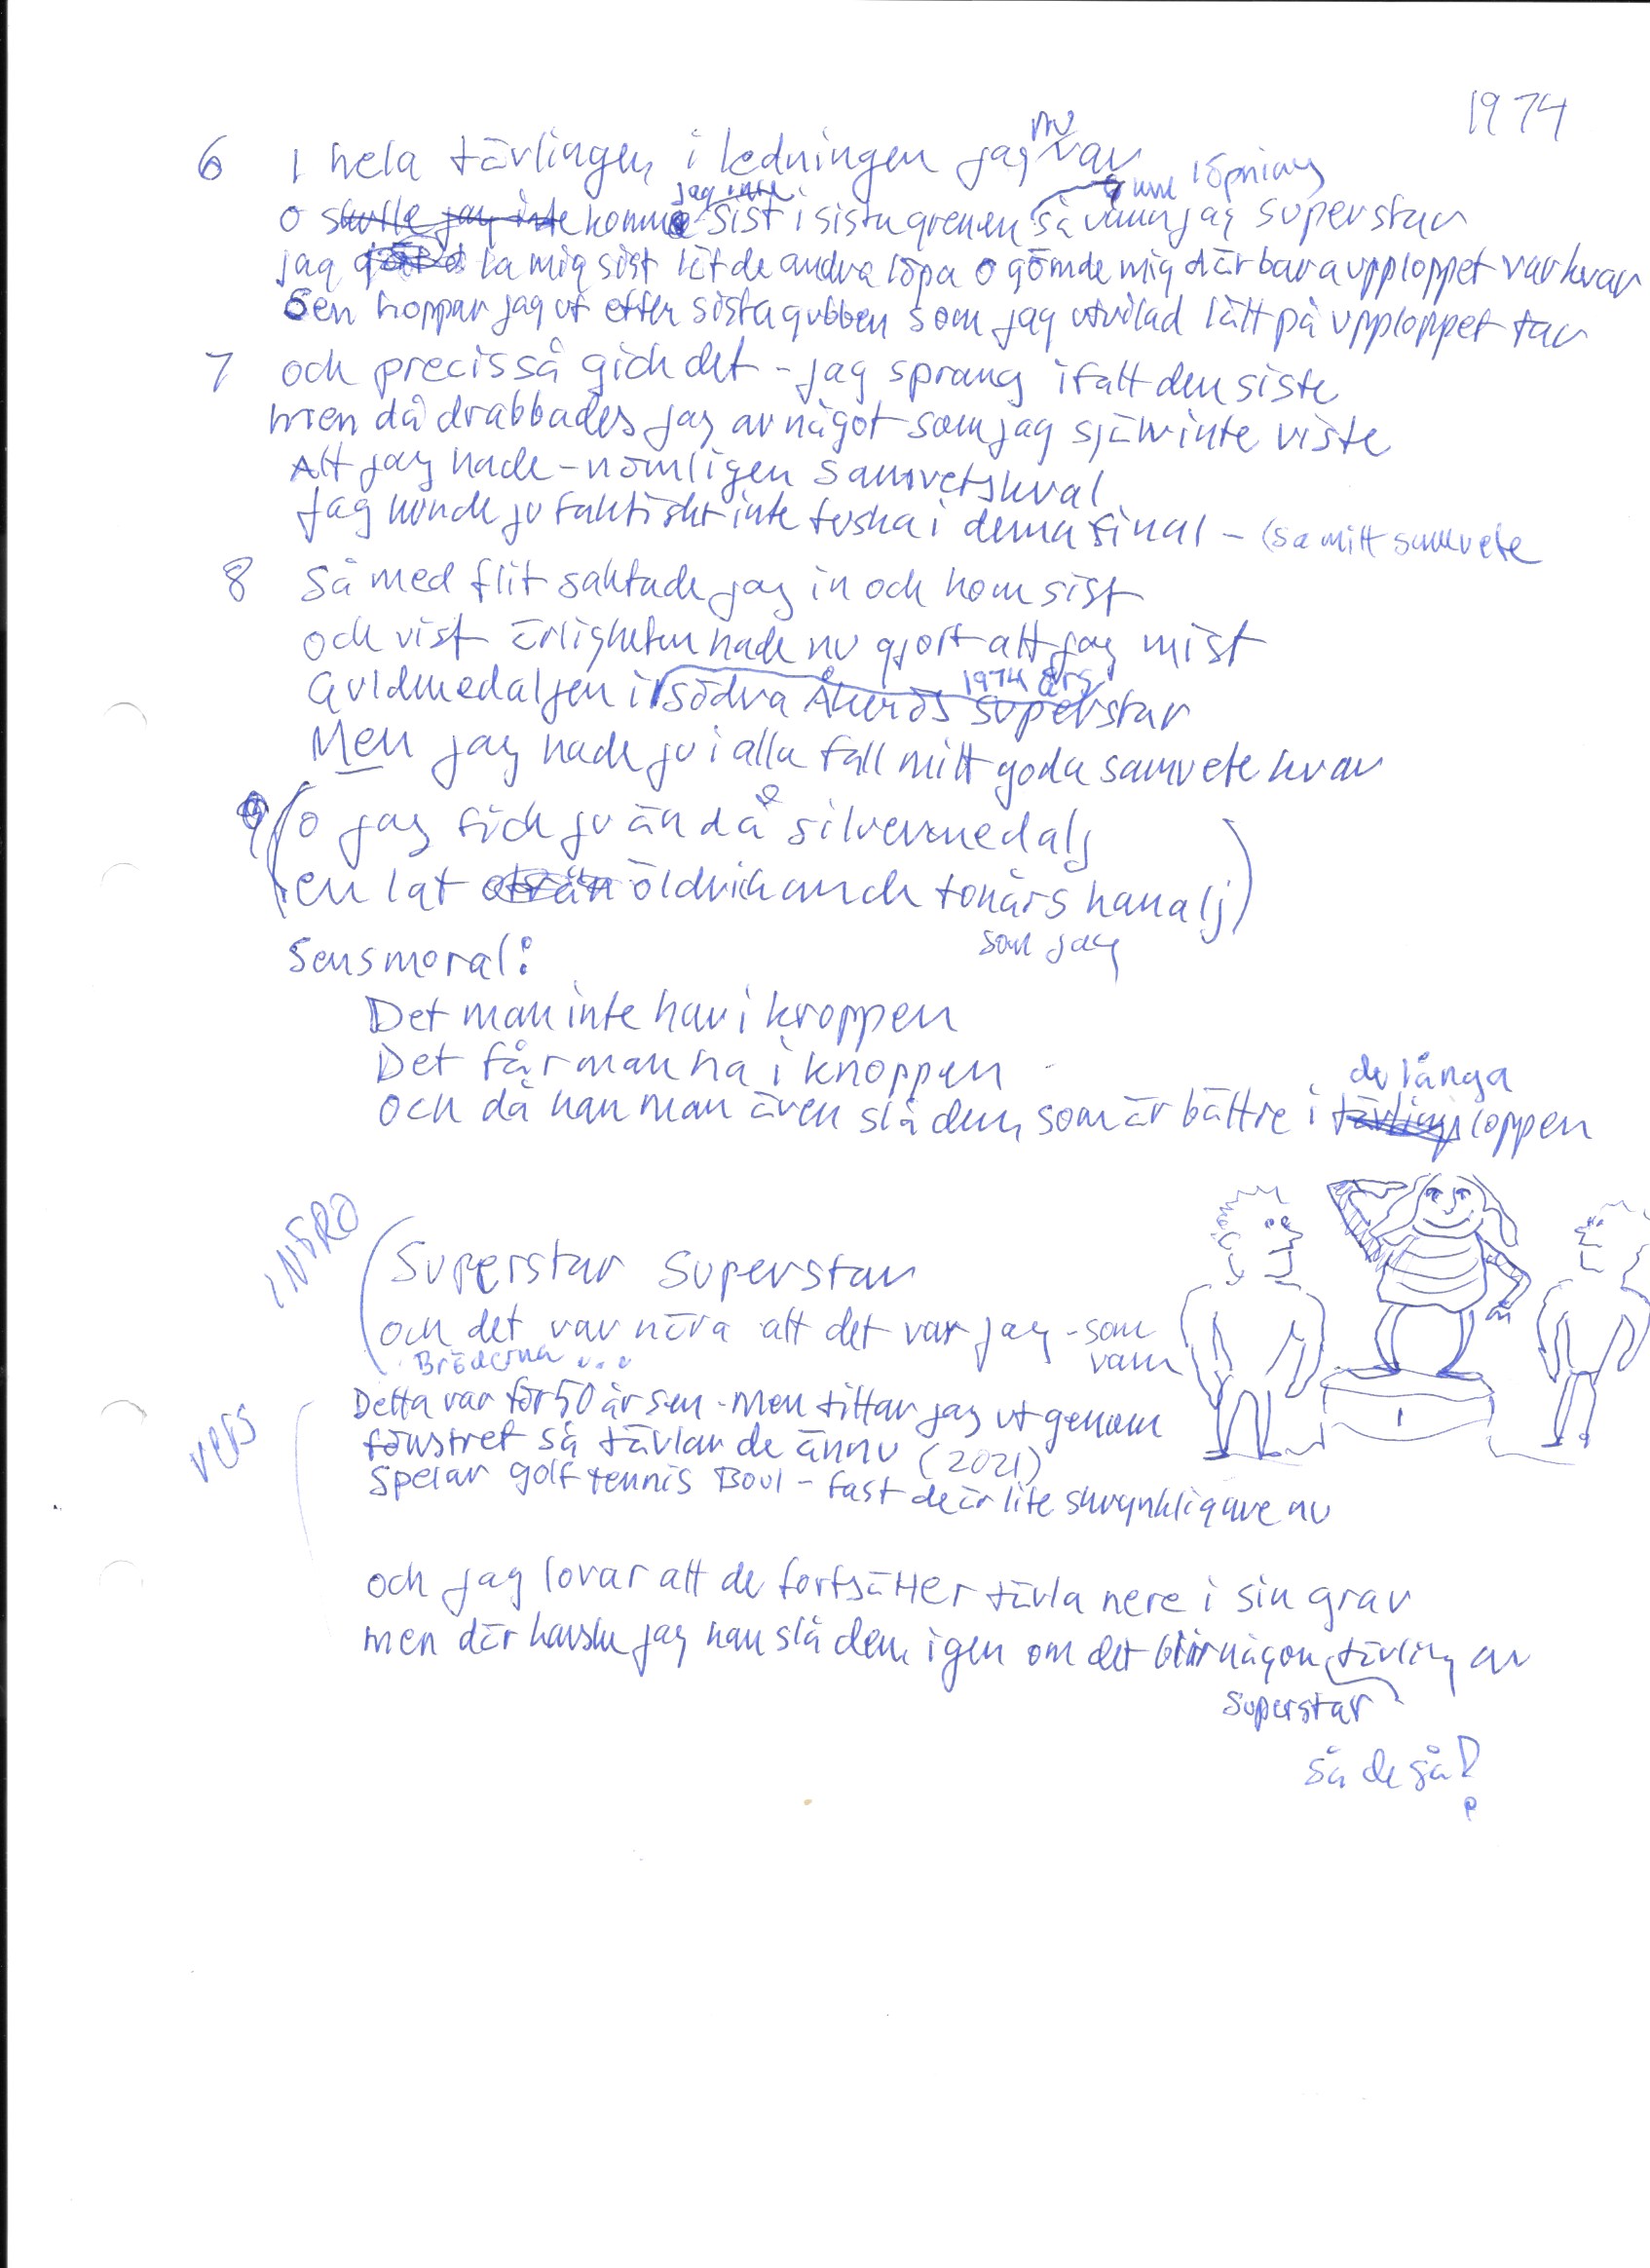 1974
6 I hela tävlingen i ledningen jag nu var
o skulle jag inte komme jag inte sist i sista grenen så vinner jag superstar
löpning
jag la mig sist lät de andra löpa o gömde mig där bara upploppet var kvar
Sen hoppar jag ut efter sista gubben som jag utvilad lätt på upploppet tar
7 och precis så gick det - jag sprang ifatt den siste
men då drabbades jag av något som jag själv inte viste
Att jag hade - nämligen samvetskval
Jag kunde ju faktiskt inte fuska i denna final - (sa mitt samvete
8 Så med flit saktade jag in och kom sist
och visst ärligheten hade nu gjort att jag mist
1974 års
Guldmedaljen i södra Åkerös superstar
Men jag hade ju i alla fall mitt goda samvete kvar
9 (o jag fick ju ändå silvermedalj
en lat öldrickande tonårs kanalj)
som jag
Sensmoral:
Det man inte har i kroppen
Det får man ha i knoppen
de långa
och då kan man även slå dem som är bättre i tävlings loppen
INTRO
(Superstar Superstar
och det var nära att det var jag - som vann
Bröderna ...
VERS
Detta var för 50 år sen - Men tittar jag ut genom
fönstret så tävlar de ännu (2021)
Spelar golf tennis Boul - fast de är lite skrynkligare nu
1
och jag lovar att de fortsätter tävla nere i sin grav
men där kanske jag kan slå dem igen om det blir någon tävling av
superstar
Så de så!